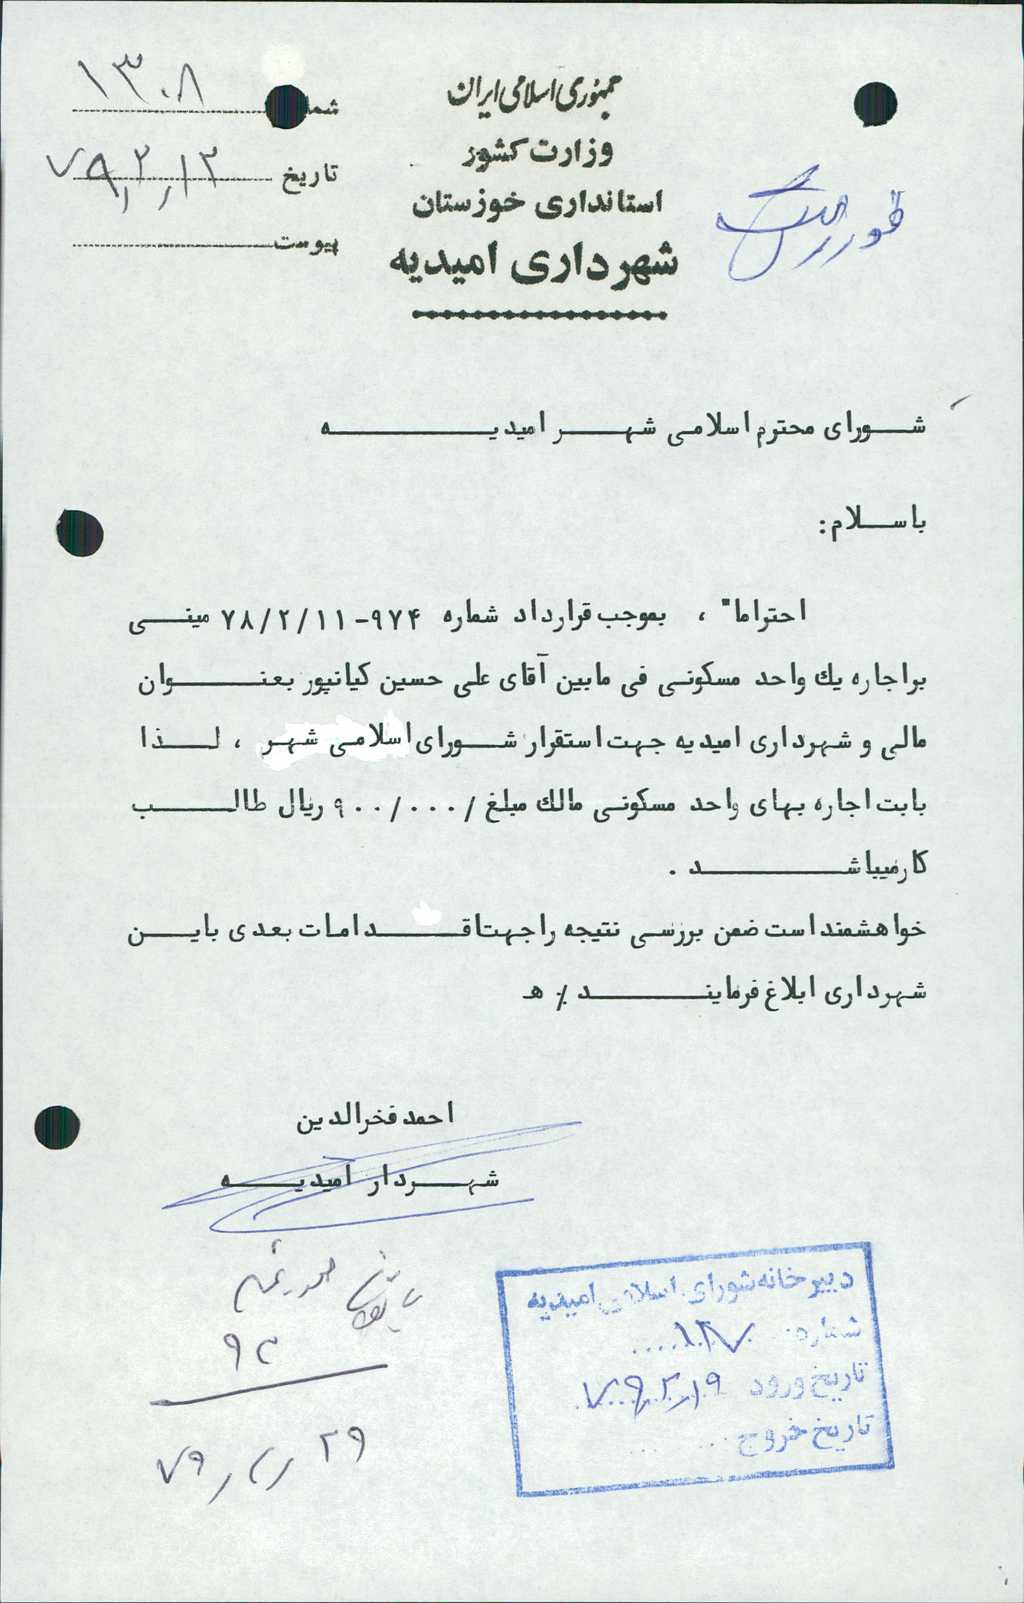 جمهوری اسلامی ایران
وزارت کشور
استانداری خوزستان
شهرداری امیدیه
شما ۱۳۰۸
تاریخ ۷۹٫۲٫۱۳
پیوست
شورای محترم اسلامی شهر امیدیه
باسلام:
احتراما" ، بموجب قرارداد شماره ۹۷۴-۷۸/۲/۱۱ مبنی
براجاره یك واحد مسکونی فی مابین آقای علی حسین کیانپور بعنوان
مالی و شهرداری امیدیه جهت استقرار شورای اسلامی شهر ، لذا
بابت اجاره بهای واحد مسکونی مالك مبلغ /۹۰۰/۰۰۰ ریال طالب
کارمیباشد .
خواهشمنداست ضمن بررسی نتیجه راجهتاقدامات بعدی باین
شهرداری ابلاغ فرمایند ٪ هـ
احمد فخرالدین
شهردار امیدیه
۹۳
۷۹٫۲٫۲۹
دبیرخانه شورای اسلامی امیدیه
شماره: ۱۲۷
تاریخ ورود ۷۹٫۲٫۱۹
تاریخ خروج